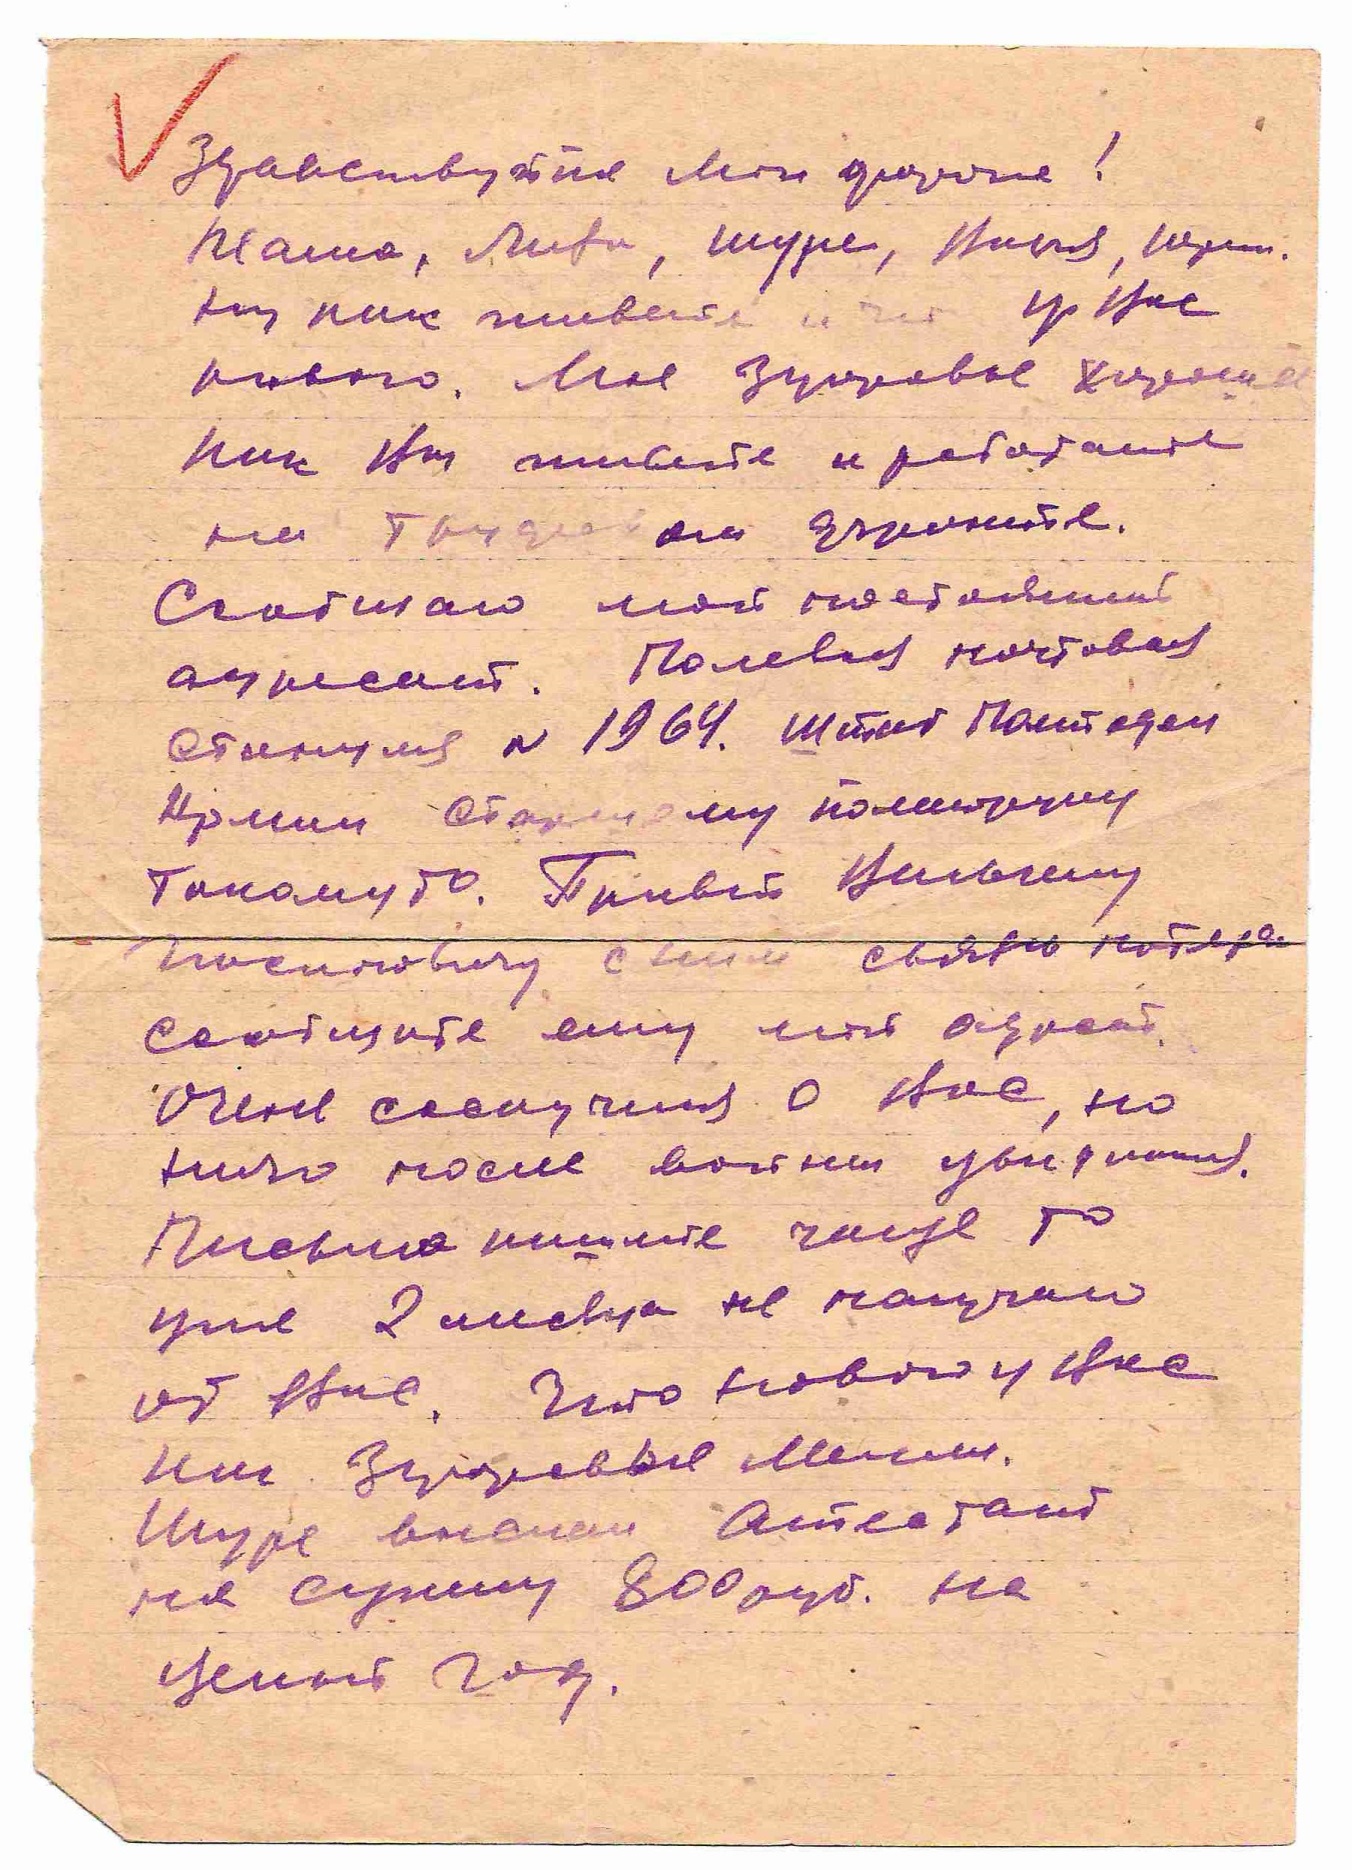 Здравствуйте мои дорогие!
Мама, Лиза, Шура, Витя, Юрик.
Ну как живете и что у Вас
нового. Мое Здоровье хорошее
Как Вы живете и работаете
на Трудовом фронте.
Сообщаю мой настоящий
адрес. Полевая почтовая
станция № 1964. Штаб
Армии Старшему
Такомуто. Привет
с ним связь потерял
сообщите ему мой адрес.
Очень соскучился о Вас, но
ничо после войны увидимся.
Письма пишите чаще то
уже 2 месяца не получаю
от Вас. Что нового у Вас
как Здоровье Мамы.
Шуре выслал Аттестат
на сумму 800 руб. на
целый год.